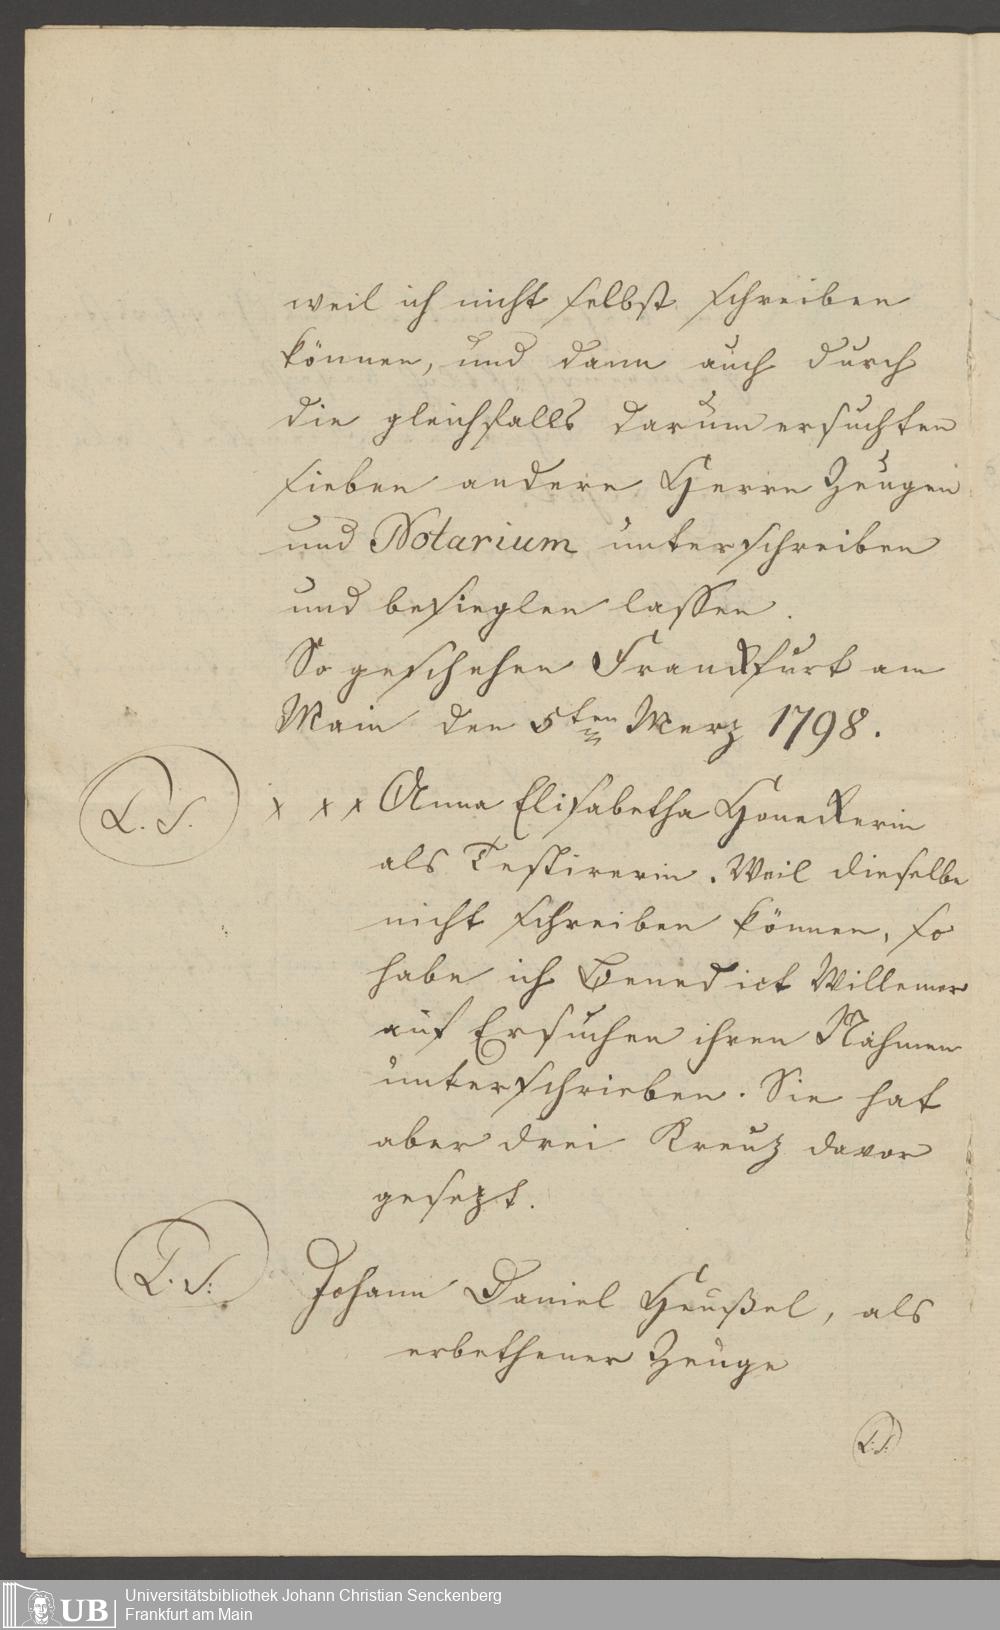 weil ich nicht selbst schreiben
können, und dann auch durch
die gleichfalls darum ersuchten
sieben andere Herrn Zeugen
und Notarium unterschreiben
und besieglen lassen.
So geschehen Franckfurt am
Main den 5ten Merz 1798.
L. S. x x x Anna Elisabetha Honeckerin
als Testirerin. Weil dieselbe
nicht schreiben können, so
habe ich Benedict Willemer
auf Ersuchen ihren Nahmen
unterschrieben. Sie hat
aber drei Kreuz davor
gesezt.
L. S. Johann Daniel Heußel, als
erbethener Zeuge
L. S.
UB Universitätsbibliothek Johann Christian Senckenberg
Frankfurt am Main